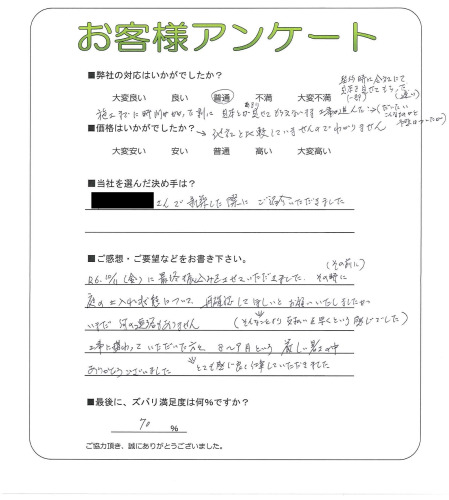 お客様アンケート
■弊社の対応はいかがでしたか?
大変良い 良い 普通 不満 大変不満
施工までに時間がかかった割に 見本とか見せてもらえないまま工事が進んだ
■価格はいかがでしたか? → 他社と比較していませんのでわかりません
大変安い 安い 普通 高い 大変高い
■当社を選んだ決め手は?
さんで新築した際に ご紹介いただきました
■ご感想・ご要望などをお書き下さい。
(その前に)
R6.10/11(金)に最終振込みをさせていただきました。その時に
庭の土入れ状態について、再確認してほしいとお願いいたしましたが
いまだ何の連絡もありません (そんなことより支払いを早くという感じでした)
工事に携わっていただいた方々 8〜9月という 厳しい暑さの中
ありがとうございました とても感じ良く仕事していただきました
■最後に、ズバリ満足度は何%ですか?
70 %
ご協力頂き、誠にありがとうございました。